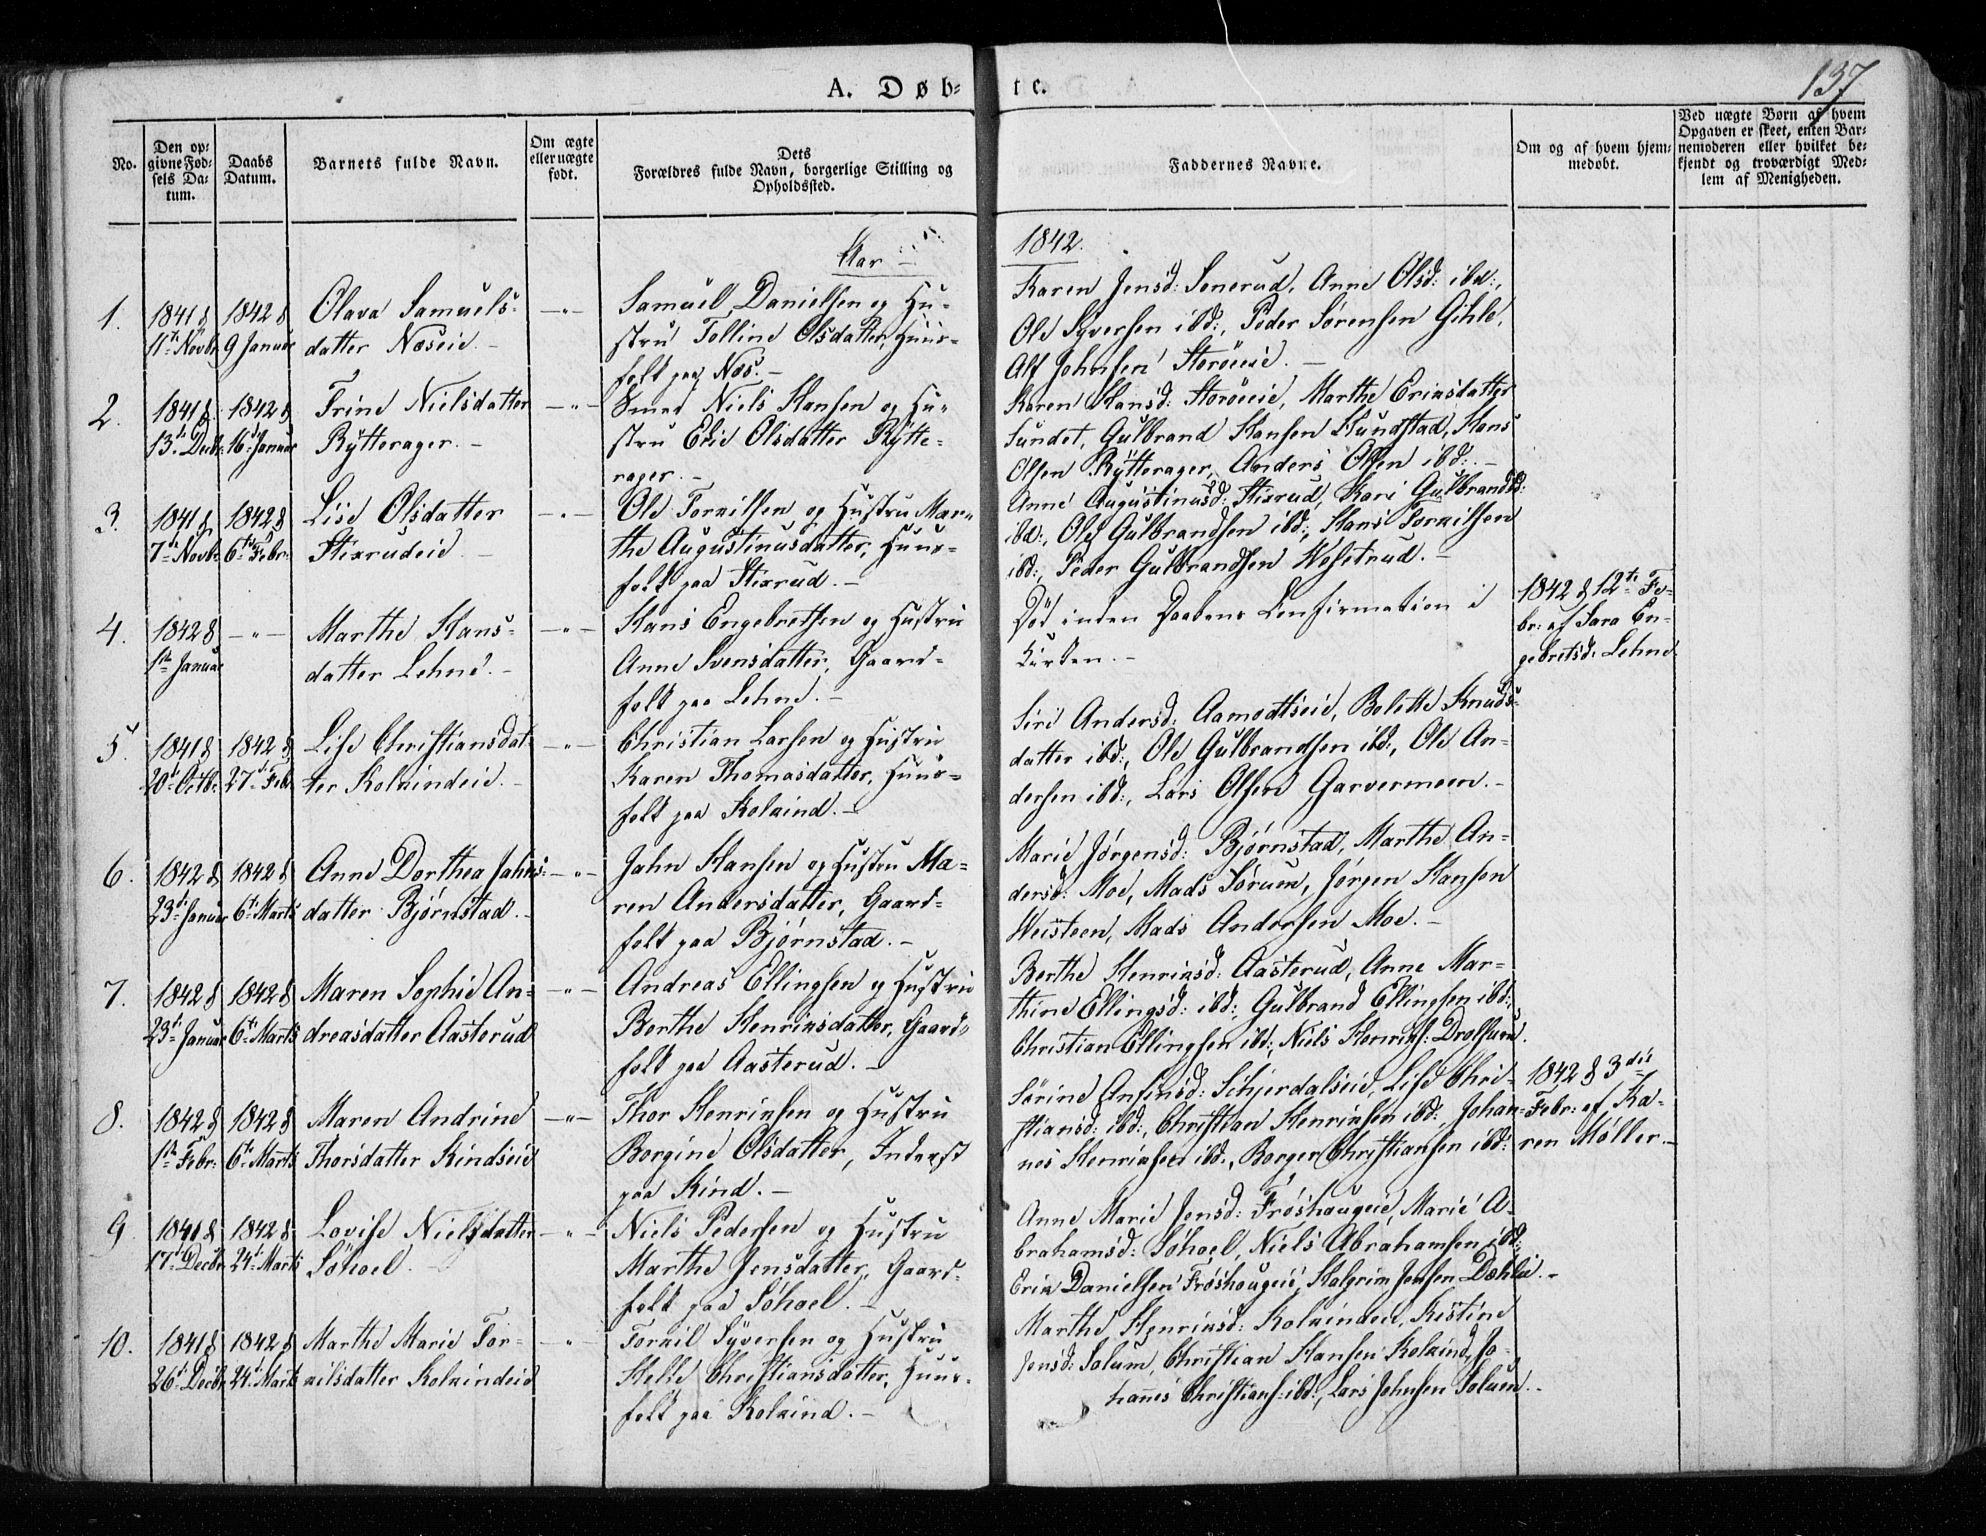 137
A. Døb-te.
No.
Den op-
givne Fød-
sels Da-
tum.
Daabs
Datum.
Barnets fulde Navn.
Om ægte
eller uægte
født.
Dets
Forældres fulde Navn, borgerlige Stilling og
Opholdssted.
Faddernes Navne.
Om og af hvem hjem-
medøbt.
Ved uægte Børn af hvem
Opgaven er skeet, enten Bar-
nemoderen eller hvilket be-
kjendt og troværdigt Med-
lem af Menigheden.
Aar
1842.
1.
1841 d
11te Novbr
1842 d
9 Januar
Olava Samuels-
datter Næseie.
—"—
Samuel Danielsen og Hu-
stru Olsdatter, Huus-
folk paa Næs.-
Karen Jensd: Senerud, Anne Olsd: ibd:,
Ole Syversen ibd:, Peder Sørensen Gihle,
Alf Johnsen Storöeie.-
2.
1841 d
13de Decbr
1842 d
16de Januar
Trine Nielsdatter
Rytterager.-
—"—
Smed Niels Hansen og Hu-
stru Elie Olsdatter Rytte-
rager.-
Karen Hansd: Storöeie, Marthe Ericsdatter
Sundet, Gulbrand Hansen Hundstad, Hans
Olsen Rytterager, Anders Olsen ibd:-
3.
1841 d
7de Novbr
1842 d
6te Febr:
Lise Olsdatter
Stixrudeie.-
—"—
Ole Torkilsen og Hustru Mar-
the Augustinusdatter, Huus-
folk paa Stixrud.-
Anne Augustinusd: Stixrud, Kari Gulbrandsd:
ibd:, Ole Gulbrandsen ibd:, Hans Torkilsen
ibd:, Peder Gulbrandsen.-
4.
1842 d
1ste Januar
—"—
Marthe Hans-
datter Lehne.-
—"—
Hans Engebretsen og Hustru
Anne Svensdatter, Gaard-
folk paa Lehne.-
Död inden Daabens Confirmation i
Kirken.-
1842 d 12te Fe-
br: af Sara En-
gebretsd: Lehne.
5
1841 d
20de Octbr
1842 d
27de Febr
Lise Christiansdat-
ter Kolkindeie.-
—"—
Christian Larsen og Hustru
Karen Thomasdatter, Huus-
folk paa Kolkind.-
Siri Andersd: Aamodtseie, Bolette Knuds-
datter ibd:, Ole Gulbrandsen ibd:, Ole An-
dersen ibd:, Lars Olsen Garvermoen.-
6.
1842 d
23de Januar
1842 d
6te Marts
Anne Dorthea Jahns-
datter Bjørnstad.-
—"—
Jahn Hansen og Hustru Ma-
ren Andersdatter, Gaard-
folk paa Bjørnstad.-
Marie Jørgensd: Bjørnstad, Marthe An-
dersd: Moe, Mads Sørum, Jørgen Hansen
Weisteen, Mads Andersen Moe.-
7.
1842 d
23de Januar
1842 d
6te Marts
Maren Sophie An-
dreasdatter Aasterud
—"—
Andreas Ellingsen og Hustru
Berthe Henriksdatter, Gaard-
folk paa Aasterud.-
Berthe Henriksd: Aasterud, Anne Mar-
thine Ellingsd: ibd:, Gulbrand Ellingsen ibd:,
Christian Ellingsen ibd:, Niels Henriks: Drolsum.
8.
1842 d
1ste Febr:
1842 d
6te Marts
Maren Andrine
Thorsdatter Kindseie
—"—
Thor Henriksen og Hustru
Borgine Olsdatter, Inderst
paa Kind.-
Sörine Ansensd: Schjerdalseie, Lise Chri-
stiansd: ibd:, Christian Henriksen ibd:, Johan-
nes Henriksen ibd:, Borger Christiansen ibd:
1842 d 3die
Febr: af Ka-
ren Møller.-
9.
1841 d
17de Decbr
1842 d
24de Marts
Lovise Nielsdatter
Söhoel.-
—"—
Niels Pedersen og Hustru
Marthe Jensdatter, Gaard-
folk paa Söhoel.-
Anne Marie Jensd: Fröshougeie, Marie A-
brahamsd: Söhoel, Niels Abrahamsen ibd:,
Erik Danielsen Fröshougeie, Halgrim Jensen Dæhlie.-
10.
1841 d
26de Decbr
1842 d
24de Marts
Marthe Marie Tor-
kilsdatter Kolkindeie
"
Torkil Syversen og Hustru
Helle Christiansdatter, Huus-
folk paa Kolkind.-
Marthe Henriksd: Kolkindeie, Kistine
Jensd: Solum, Christian Hansen Kolkind, Jo-
hannes Christians: ibd:, Lars Johnsen Solum.-